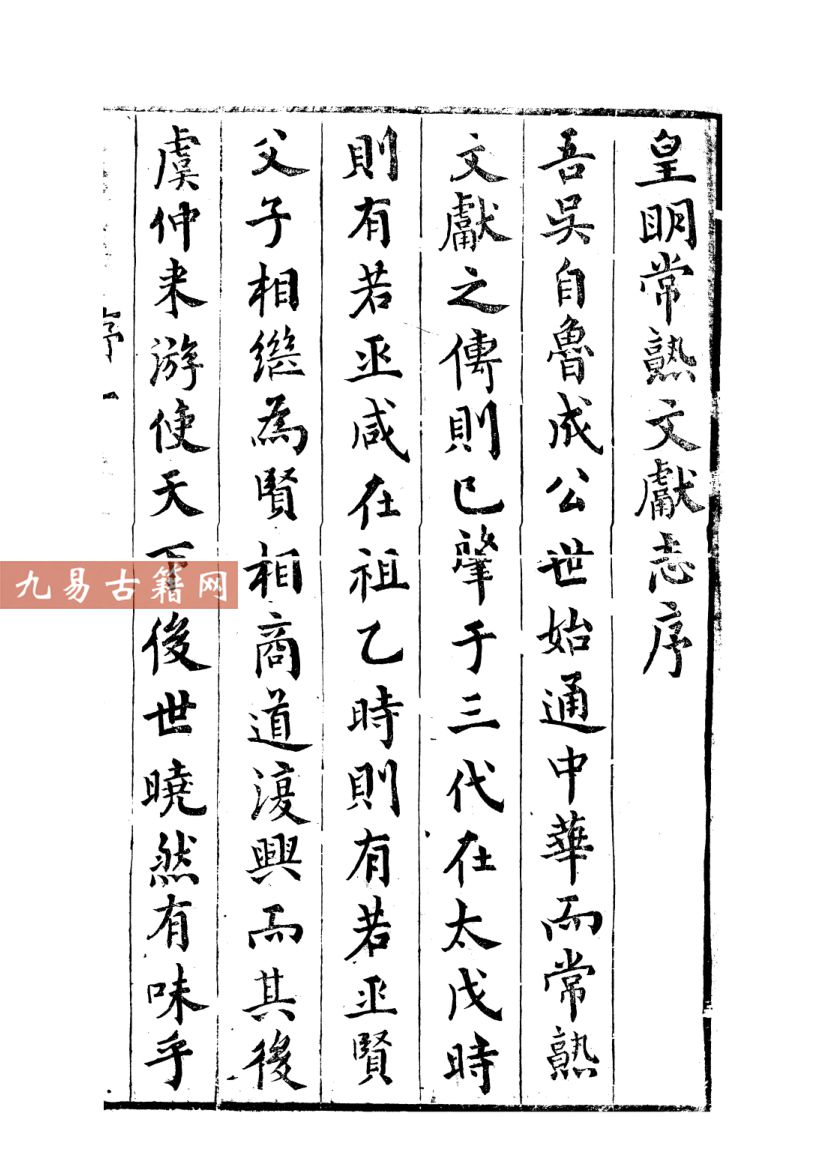 皇明常熟文獻志序
吾吳自魯成公世始通中華而常熟
文獻之傳則已肇于三代在太戊時
則有若巫咸在祖乙時則有若巫賢
父子相繼為賢相商道復興而其後
虞仲來游使天下後世曉然有味乎
序 一
九易古籍网